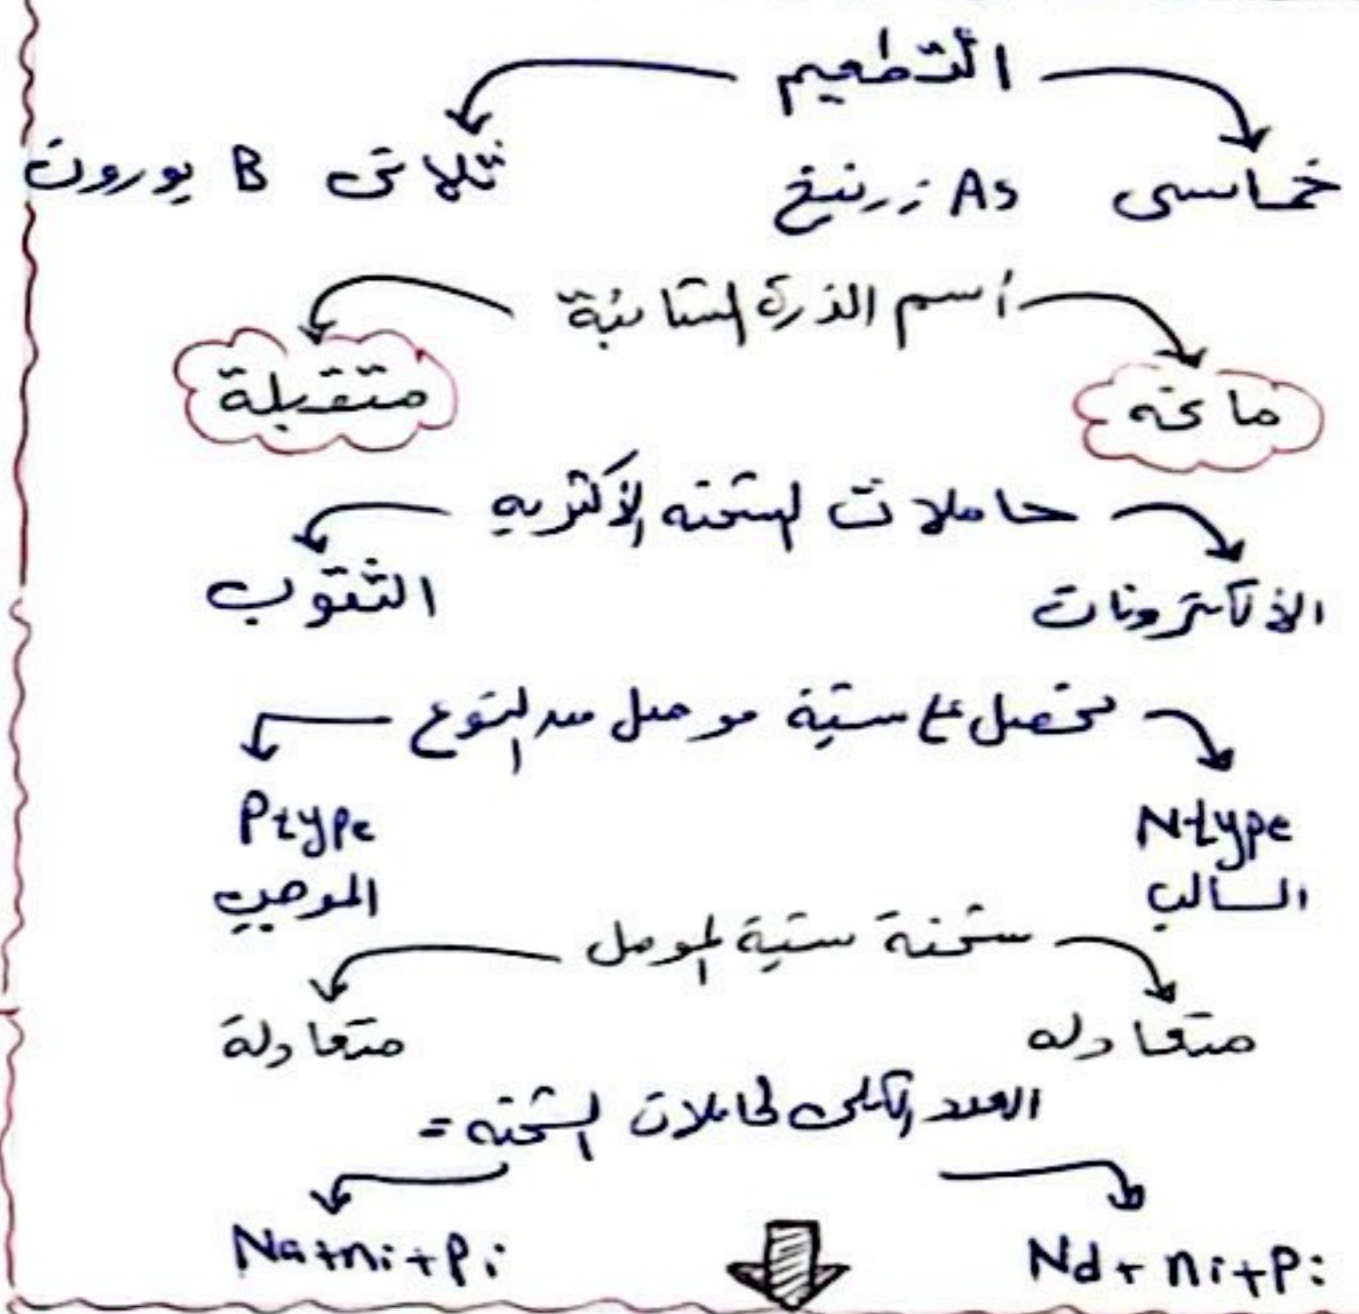 التطعيم
خماسى As زرنيخ ثلاثى B بورون
اسم الذرة الشائبة
مانحه متقبلة
حاملات الشحنه الأكثريه
الألكترونات الثقوب
نحصل على شبة موصل من النوع
N-type P type
السالب الموجب
شحنة شبة الموصل
متعادله متعادلة
العدد الكلى لحاملات الشحنه =
Nd + ni + Pi Na + ni + Pi